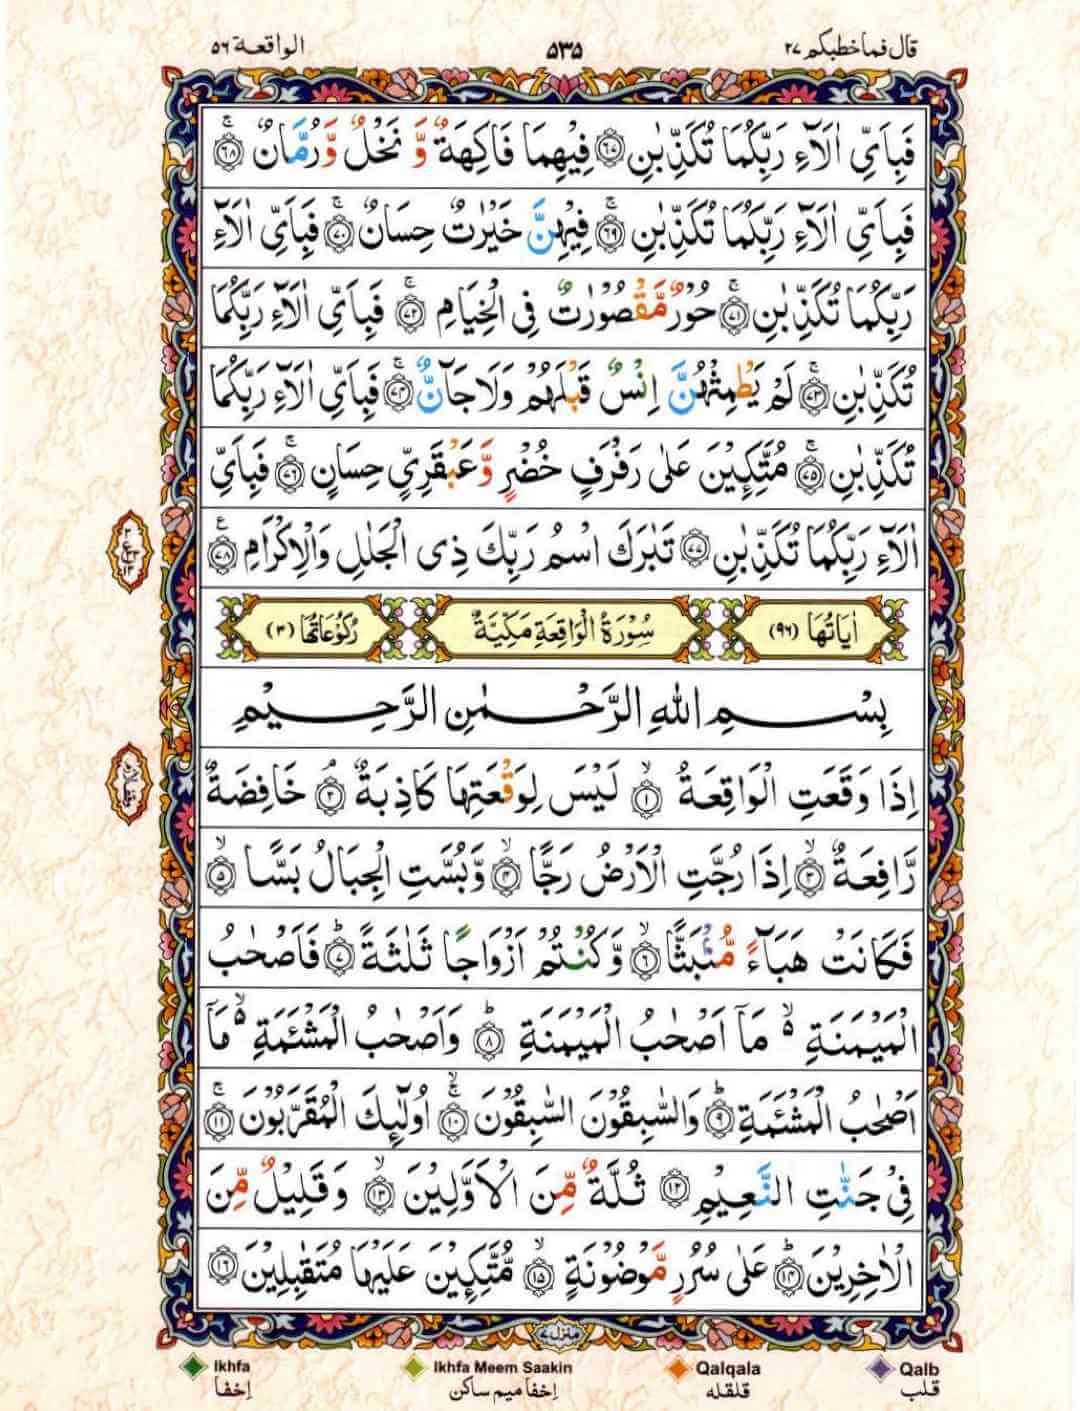 قال فماخطبكم ٢٧
۵۳۵
الواقعة ٥٦
فَبِاَىِّ اٰلَآءِ رَبِّكُمَا تُكَذِّبٰنِ ﴿۶۷﴾ فِيْهِمَا فَاكِهَةٌ وَّ نَخْلٌ وَّرُمَّانٌ ۚ ﴿۶۸﴾
فَبِاَىِّ اٰلَآءِ رَبِّكُمَا تُكَذِّبٰنِ ۚ ﴿۶۹﴾ فِيْهِنَّ خَيْرٰتٌ حِسَانٌ ۚ ﴿۷۰﴾ فَبِاَىِّ اٰلَآءِ
رَبِّكُمَا تُكَذِّبٰنِ ۚ ﴿۷۱﴾ حُوْرٌ مَّقْصُوْرٰتٌ فِى الْخِيَامِ ۚ ﴿۷۲﴾ فَبِاَىِّ اٰلَآءِ رَبِّكُمَا
تُكَذِّبٰنِ ۚ ﴿۷۳﴾ لَمْ يَطْمِثْهُنَّ اِنْسٌ قَبْلَهُمْ وَلَا جَآنٌّ ۚ ﴿۷۴﴾ فَبِاَىِّ اٰلَآءِ رَبِّكُمَا
تُكَذِّبٰنِ ۚ ﴿۷۵﴾ مُتَّكِـِٕيْنَ عَلٰى رَفْرَفٍ خُضْرٍ وَّعَبْقَرِىٍّ حِسَانٍ ۚ ﴿۷۶﴾ فَبِاَىِّ
اٰلَآءِ رَبِّكُمَا تُكَذِّبٰنِ ﴿۷۷﴾ تَبٰرَكَ اسْمُ رَبِّكَ ذِى الْجَلٰلِ وَالْاِكْرَامِ ۧ ﴿۷۸﴾
اٰيَاتُهَا (۹۶)
سُوْرَةُ الْوَاقِعَةِ مَكِّيَّةٌ
رُكُوْعَاتُهَا (۳)
بِسْمِ اللهِ الرَّحْمٰنِ الرَّحِيْمِ
اِذَا وَقَعَتِ الْوَاقِعَةُ ۙ ﴿۱﴾ لَيْسَ لِوَقْعَتِهَا كَاذِبَةٌ ۘ ﴿۲﴾ خَافِضَةٌ
رَّافِعَةٌ ۙ ﴿۳﴾ اِذَا رُجَّتِ الْاَرْضُ رَجًّا ۙ ﴿۴﴾ وَّبُسَّتِ الْجِبَالُ بَسًّا ۙ ﴿۵﴾
فَكَانَتْ هَبَآءً مُّنْۢبَثًّا ۙ ﴿۶﴾ وَّكُنْتُمْ اَزْوَاجًا ثَلٰثَةً ؕ ﴿۷﴾ فَاَصْحٰبُ
الْمَيْمَنَةِ ۙ۬ مَاۤ اَصْحٰبُ الْمَيْمَنَةِ ؕ ﴿۸﴾ وَاَصْحٰبُ الْمَشْئَمَةِ ۙ۬ مَاۤ
اَصْحٰبُ الْمَشْئَمَةِ ؕ ﴿۹﴾ وَالسّٰبِقُوْنَ السّٰبِقُوْنَ ۚۙ ﴿۱۰﴾ اُولٰٓئِكَ الْمُقَرَّبُوْنَ ۚ ﴿۱۱﴾
فِىْ جَنّٰتِ النَّعِيْمِ ﴿۱۲﴾ ثُلَّةٌ مِّنَ الْاَوَّلِيْنَ ۙ ﴿۱۳﴾ وَقَلِيْلٌ مِّنَ
الْاٰخِرِيْنَ ؕ ﴿۱۴﴾ عَلٰى سُرُرٍ مَّوْضُوْنَةٍ ۙ ﴿۱۵﴾ مُّتَّكِـِٕيْنَ عَلَيْهَا مُتَقٰبِلِيْنَ ﴿۱۶﴾
منزل ۷
Ikhfa
Ikhfa Meem Saakin
Qalqala
Qalb
اِخفا
اِخفا میم ساکن
قلقله
قلب